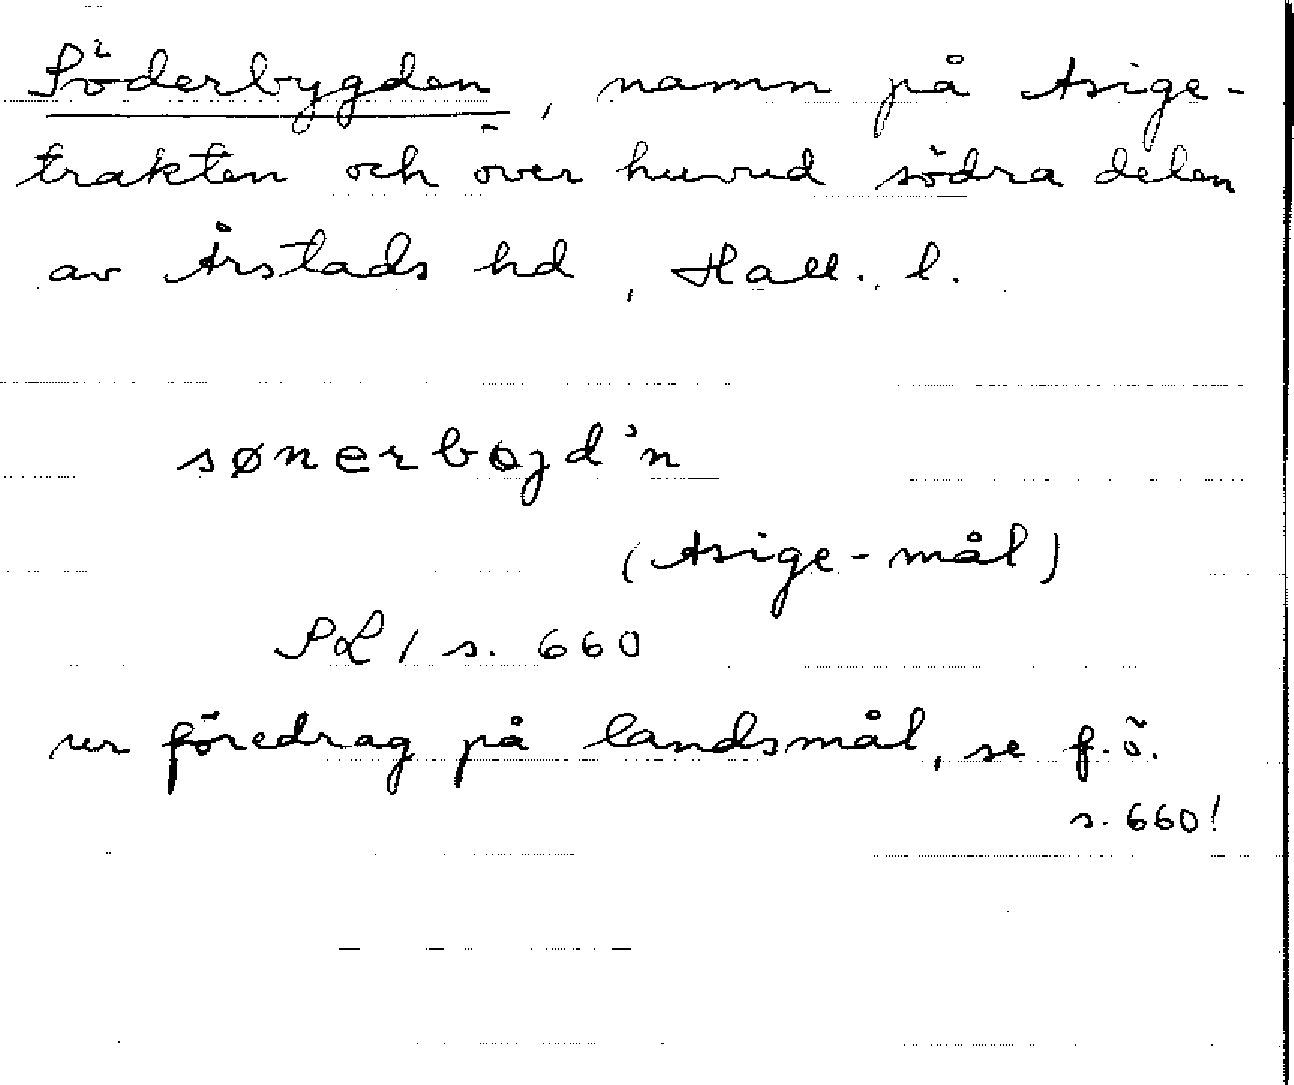 Söderbygden, namn på Asige-
trakten och över huvud södra delen
av Årstads hd, Hall. l.
sønerbøjd'n
(Asige-mål)
SL 1 s. 660
ur föredrag på landsmål, se f.ö.
s. 660!